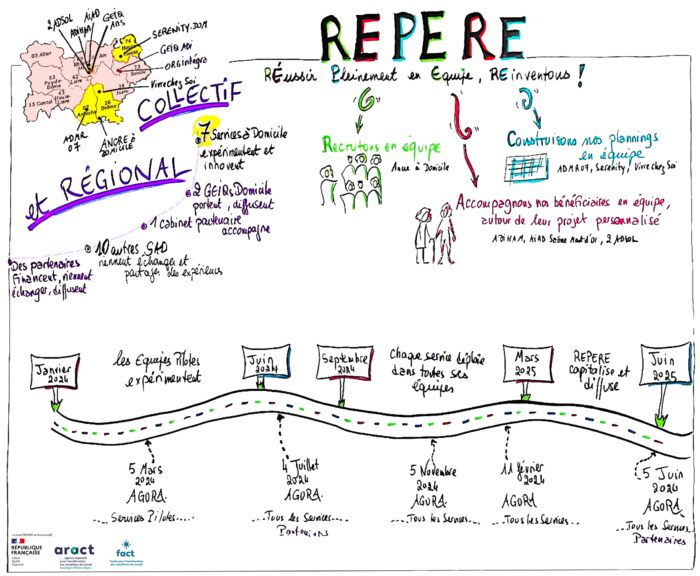 REPERE
RÉussir Pleinement en Equipe, REinventons !
2 ADSOL
ADIHAM
AiAD
GEIQ
ANS
SERENITY.DOM
GEIQ ADI
ORGintégra
Vivre chez Soi
ADMR
07
ANCRE à
DOMICILE
03 Allier
15 Cantal
COLLECTIF
et RÉGIONAL
7 Services à Domicile
expérimentent et
innovent
2 GEIQs Domicile
portent, diffusent
1 Cabinet partenaire
accompagne
10 autres SAD
viennent échanger et
partager des expériences
Des partenaires
financent, viennent
échanger, diffusent
Recrutons en équipe
Ancre à Domicile
Construisons nos plannings
en équipe
ADMR07, Serenity, Vivre chez Soi
Accompagnons nos bénéficiaires en équipe,
autour de leur projet personnalisé
ADIHAM, AiAD Saône Mont d'or, 2 ADSOL
Janvier
2024
les Equipes Pilotes
expérimentent
Juin
2024
Septembre
2024
Chaque service déploie
dans toutes ses
équipes
Mars
2025
REPERE
capitalise et
diffuse
Juin
2025
5 Mars
2024
AGORA
...Services Pilotes.....
4 Juillet
2024
AGORA
...Tous les Services...
Partenaires
5 Novembre
2024
AGORA
...Tous les Services...
11 février
2025
AGORA
...Tous les Services...
5 Juin
2024
AGORA
Tous les Services..
Partenaires
RÉPUBLIQUE
FRANÇAISE
aract
fact